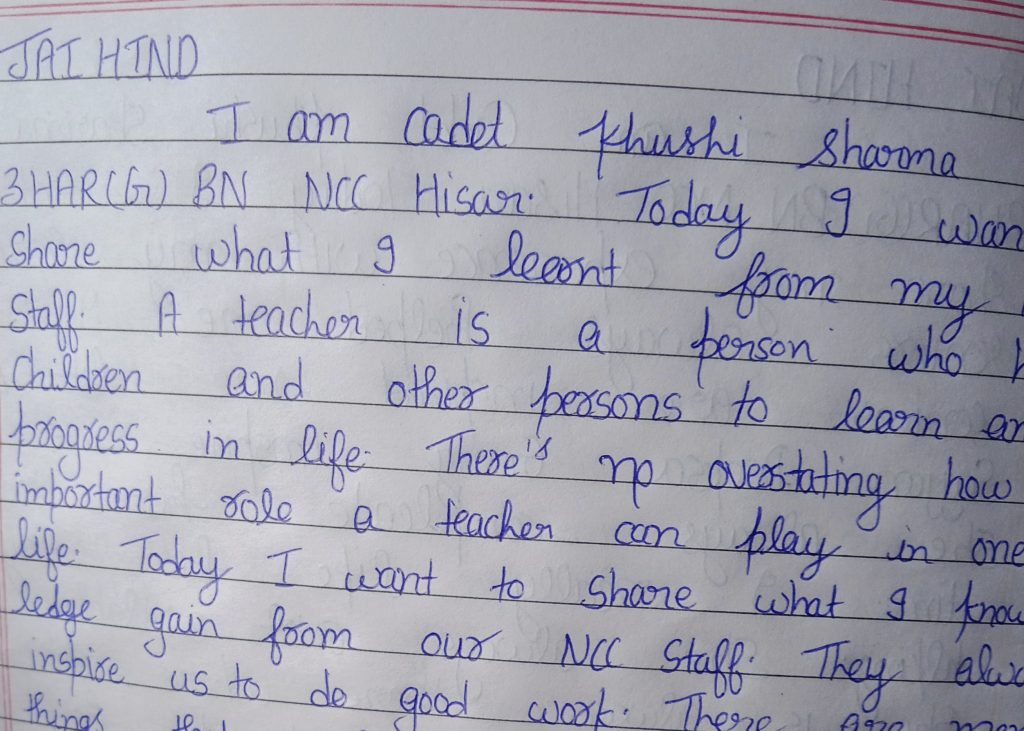 JAI HIND
I am cadet Khushi Sharma
3HAR(G) BN NCC Hisar. Today I wan
Share what I learnt from my
Staff. A teacher is a person who h
Children and other persons to learn an
progress in life. There's no overstating how
important role a teacher can play in one
life. Today I want to Share what I know
ledge gain from our NCC Staff. They alwa
inspire us to do good work. There are
things